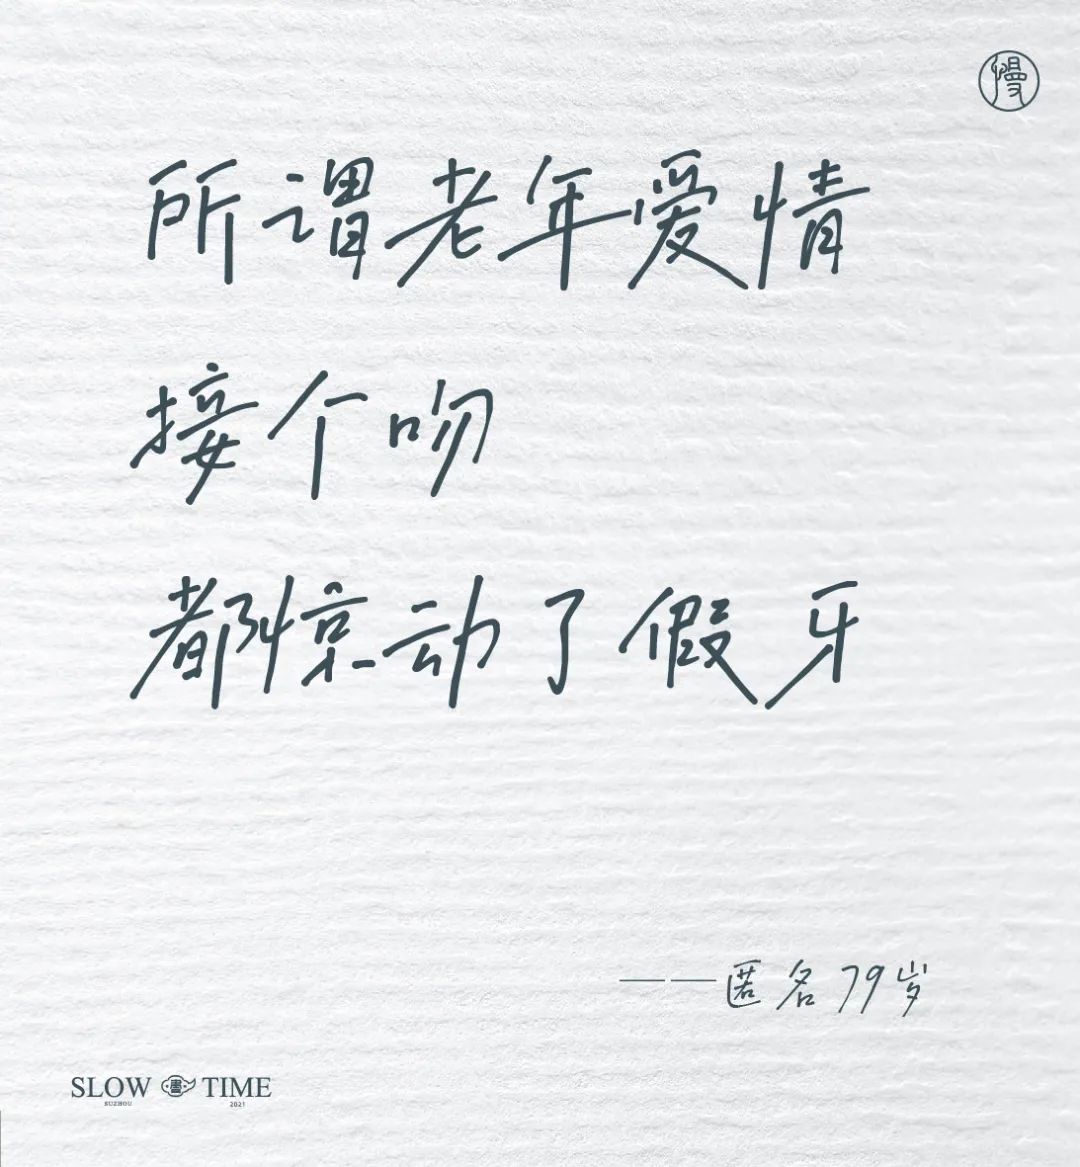 慢
所谓老年爱情
接个吻
都惊动了假牙
——匿名79岁
SLOW 書 TIME
SUZHOU 2021